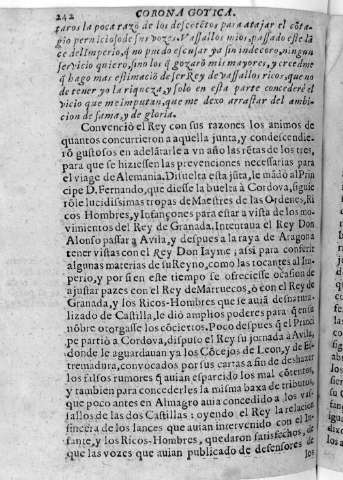 242 CORONA GOTICA.
taros la poca razõ de los descõtẽtos para atajar el cõta-
gio pernicioso de sus vozes. Vassallos mios, passado este lã
ce del Imperio, q̃ no puedo escusar ya sin indecoro, ningun
servicio quiero, sin los q̃ gozarõ mis mayores, y creedme
q̃ hago mas estimaciõ de ser Rey de vassallos ricos, que no
de tener yo la riqueza, y solo en esta parte concederè el
vicio que me imputan, que me dexo arrastar del ambi-
cion de fama, y de gloria.
Convenciò el Rey con sus razones los animos de
quantos concurrieron a aquella junta, y condescendie-
rõ gustosos en adelãtarle a vn año las rẽtas de los tres,
para que se hiziessen las prevenciones necessarias para
el viage de Alemania. Disuelta esta jũta, le mãdò al Prin
cipe D. Fernando, que diesse la buelta à Cordova, siguiẽ
rõle lucidissimas tropas de Maestres de las Ordenes, Ri
cos Hombres, y Infançones para estar a vista de los mo-
vimientos del Rey de Granada. Intentaua el Rey Don
Alonso passar a Avila, y despues a la raya de Aragona
tener vistas con el Rey Don Iayme; assi para conferir
algunas materias de su Reyno, como las tocantes al Im-
perio, y por si en este tiempo se ofreciesse ocasion de
ajustar pazes con el Rey de Marruecos, ò con el Rey de
Granada, y los Ricos-Hombres que se auiã desnatura-
lizado de Castilla, le diò amplios poderes para q̃ en su
nõbre otorgasse los cõciertos. Poco despues q̃ el Princi
pe partiò a Cordova, dispuso el Rey su jornada à Avila,
donde le aguardauan ya los Cõcejos de Leon, y de Es-
tremadura, convocados por sus cartas a fin de deshazer
los falsos rumores q̃ auian esparcido los mal cõtentos,
y tambien para concederles la misma baxa de tributos,
que poco antes en Almagro auia concedido a los vas-
sallos de las dos Castillas: oyendo el Rey la relacion
sincera de los lances que auian intervenido con el In-
fante, y los Ricos-Hombres, quedaron satisfechos, de
que las vozes que auian publicado de defensores de
los